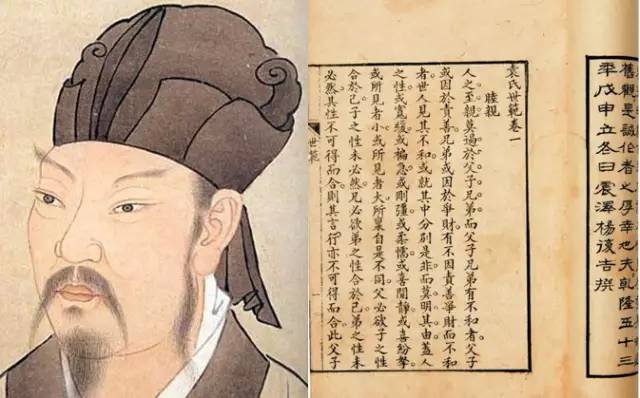 舊觀是誠作者之厚幸也夫乾隆五十三
年戊申立冬日震澤楊復吉撰
袁氏世範卷一
睦親
人之至親莫過於父子兄弟而父子兄弟有不和者父子
或因於責善兄弟或因於爭財有不因責善爭財而不和
者世人見其不和或就其中分別是非而莫明其由蓋人
之性或寬緩或褊急或剛彊或柔懦或喜閒靜或喜紛拏
或所見者小或所見者大所稟自是不同父必欲子之性
合於己子之性未必然兄必欲弟之性合於己弟之性未
必然其性不可得而合則其言行亦不可得而合此父子
世範